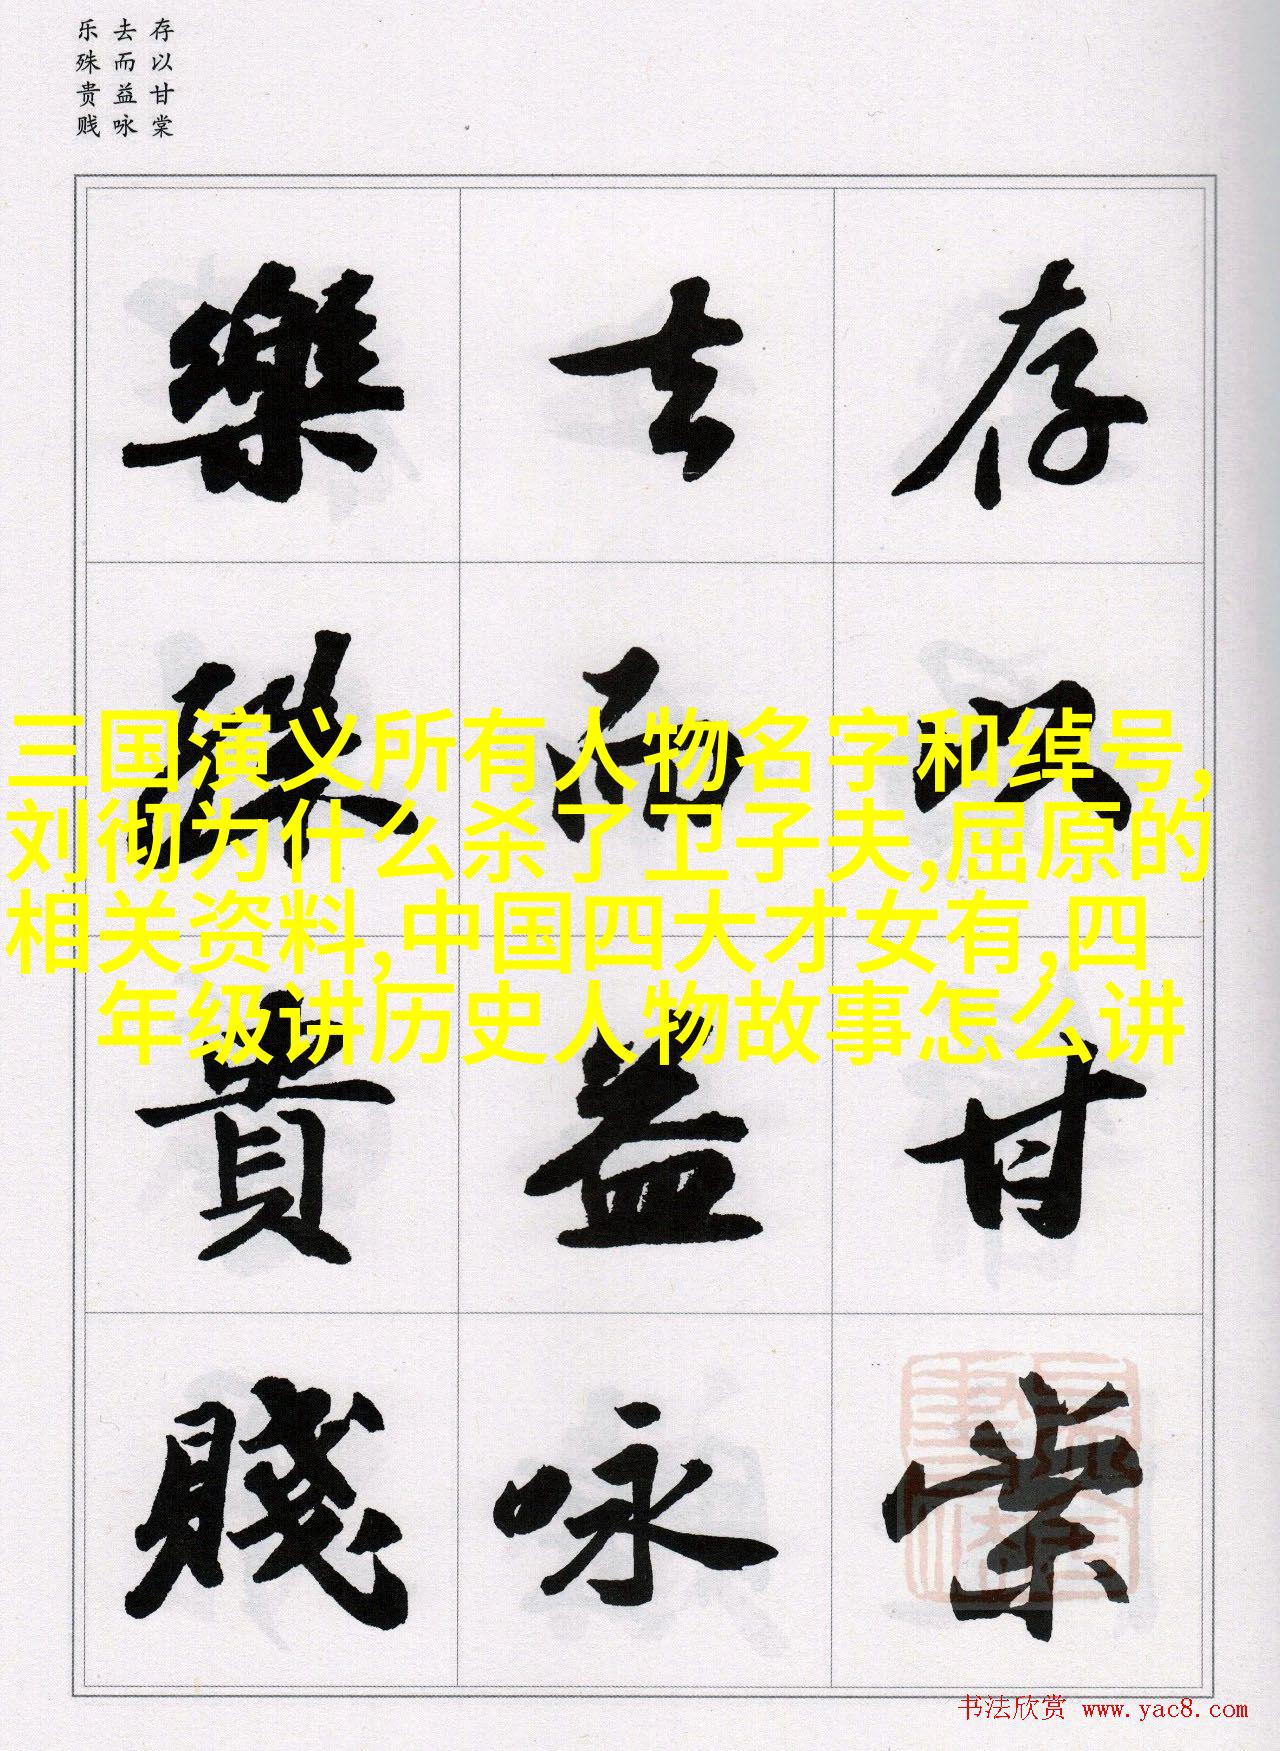 存以甘棠
去而益咏
乐殊贵贱
存以甘棠
去而益詠
樂殊貴賤
三国演义所有人物名字和绰号,
刘彻为什么杀了卫子夫,屈原的
相关资料,中国四大才女有,四
年级讲历史人物故事怎么讲
书法欣赏 www.yac8.com